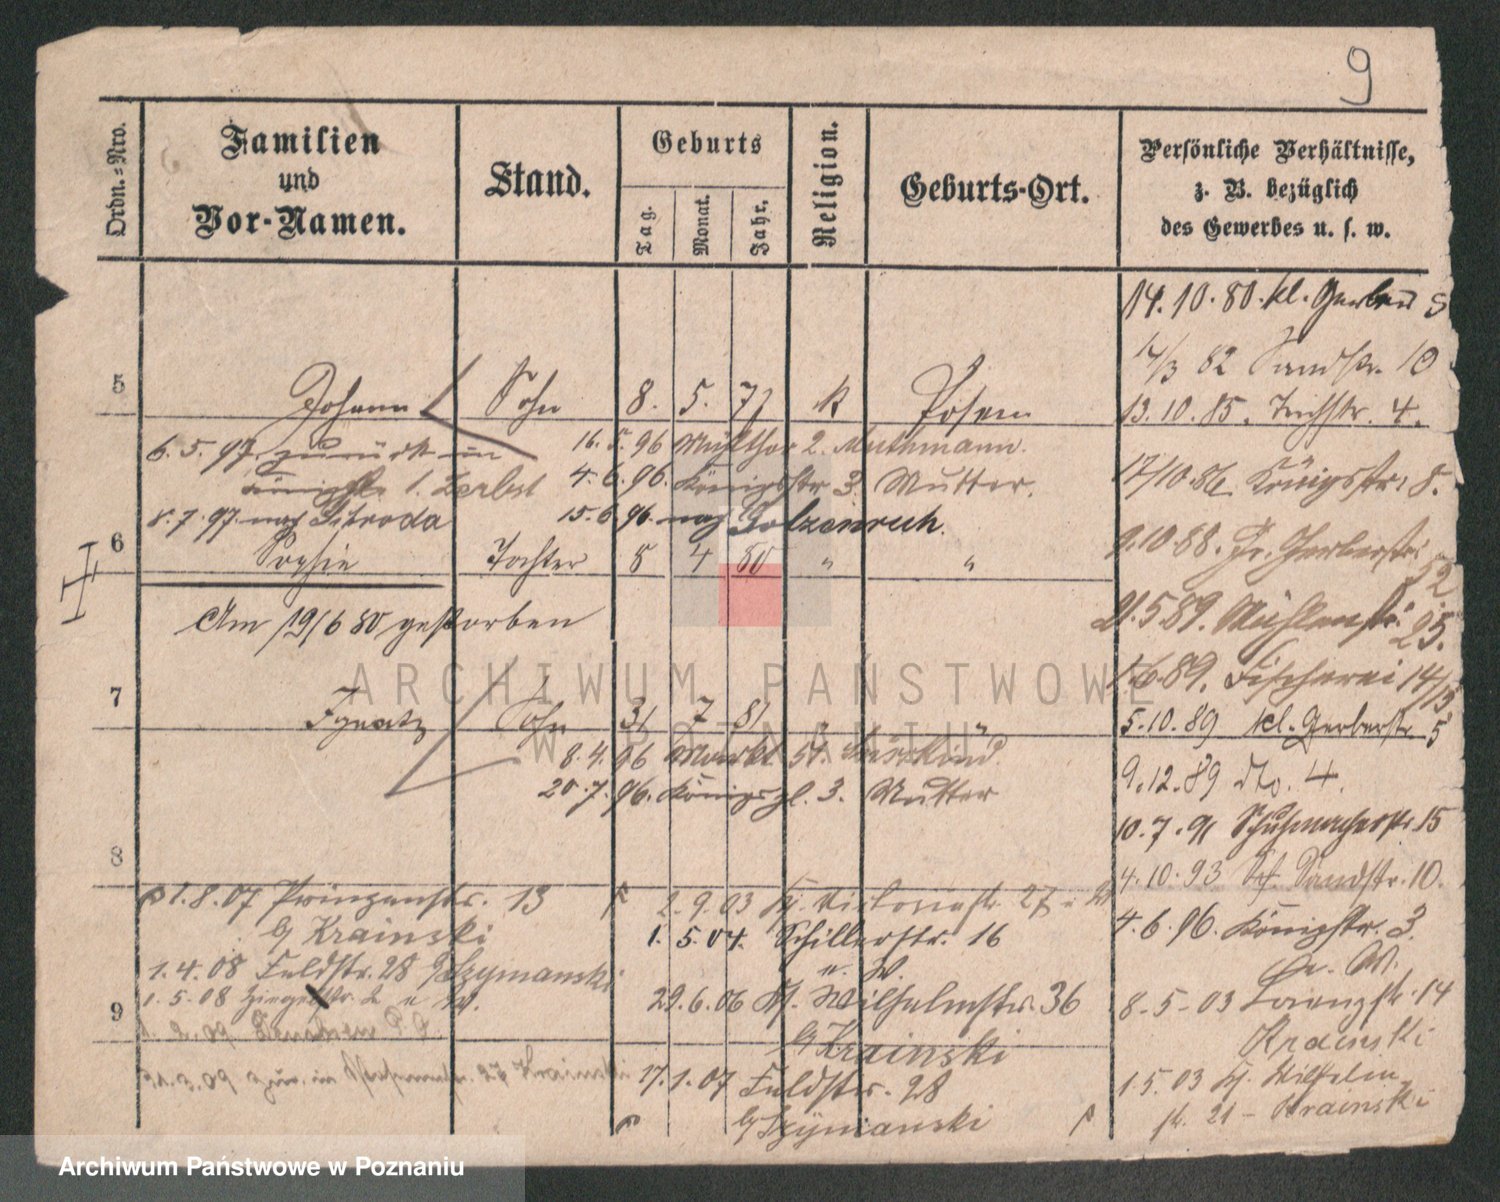 9
Ordn.-Nro.
Familien
und
Vor-Namen.
Stand.
Geburts
Tag.
Monat.
Jahr.
Religion.
Geburts-Ort.
Persönliche Verhältnisse,
z. B. bezüglich
des Gewerbes u. s. w.
14.10.80. kl. Gerberstr 5
14/3 82 Sandstr. 10
5 Johann Sohn 8. 5. 77 k Posen
13.10.85. Teichstr. 4.
6.5.97. zurück
16.5.96 Mühlthor 2. Muthmann.
1. Zerbst
4.6.96. Königsstr 3. Mutter.
17/10.86. Königsstr. 8.
8.7.97. nach Schroda
15.6.96. nach
6 Sophie Tochter 8 4 80 " "
9.10.88. Gr. Gerberstr. 52
Am 19/6 80 gestorben
21.5.89. Mühlenstr. 25.
1.6.89. Fischerei 14/15
7 Ignatz Sohn 31 7 81 " "
5.10.89 kl. Gerberstr. 5
8.4.96 Markt 51.
9.12.89 dto. 4.
20.7.96. Königspl. 3. Mutter
10.7.91 Schuhmacherstr. 15
8
4.10.93 Sandstr. 10.
1.8.07 Prinzenstr. 13
2.9.03 Victoriastr. 27
b/ Krainski
1.5.04. Schillerstr. 16
u. W.
4.6.96. Königstr. 3.
1.4.08 Feldstr. 28 b/ Szymanski
1.5.08 Ziegelstr. 2 u W.
29.6.06 Wilhelmstr. 36
b/ Krainski
8.5.03 Lorenzstr. 14
Krainski
9
17.1.07 Feldstr. 28
b/ Szymanski
1.5.03 Wilhelm
str. 21 - Krainski
ARCHIWUM PAŃSTWOWE
W POZNANIU
Archiwum Państwowe w Poznaniu